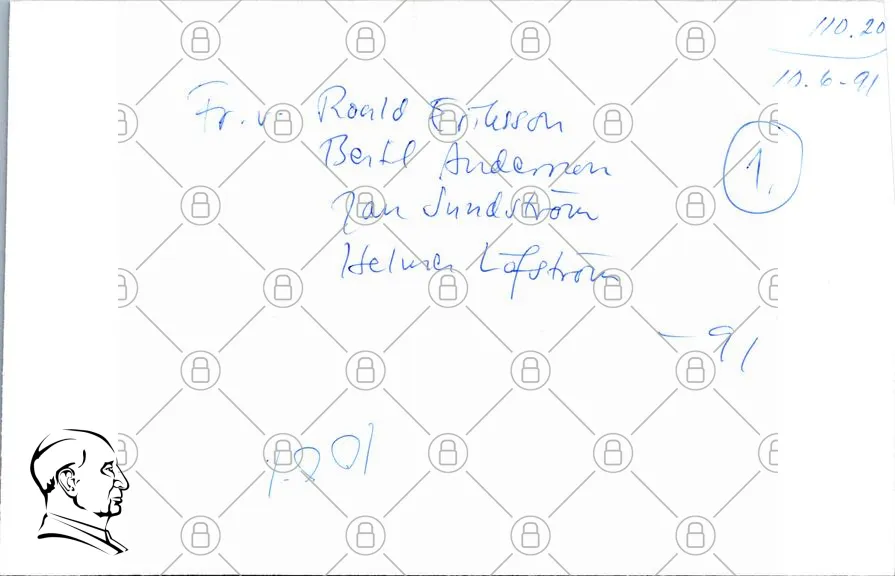 110.20
11.6-91
Fr. v. Roald Eriksson
1.
Bertil Andersson
Jan Sundström
Helmer Löfström
-91